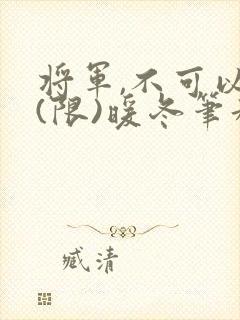 將軍,不可以
(限)暖冬筆
臧清